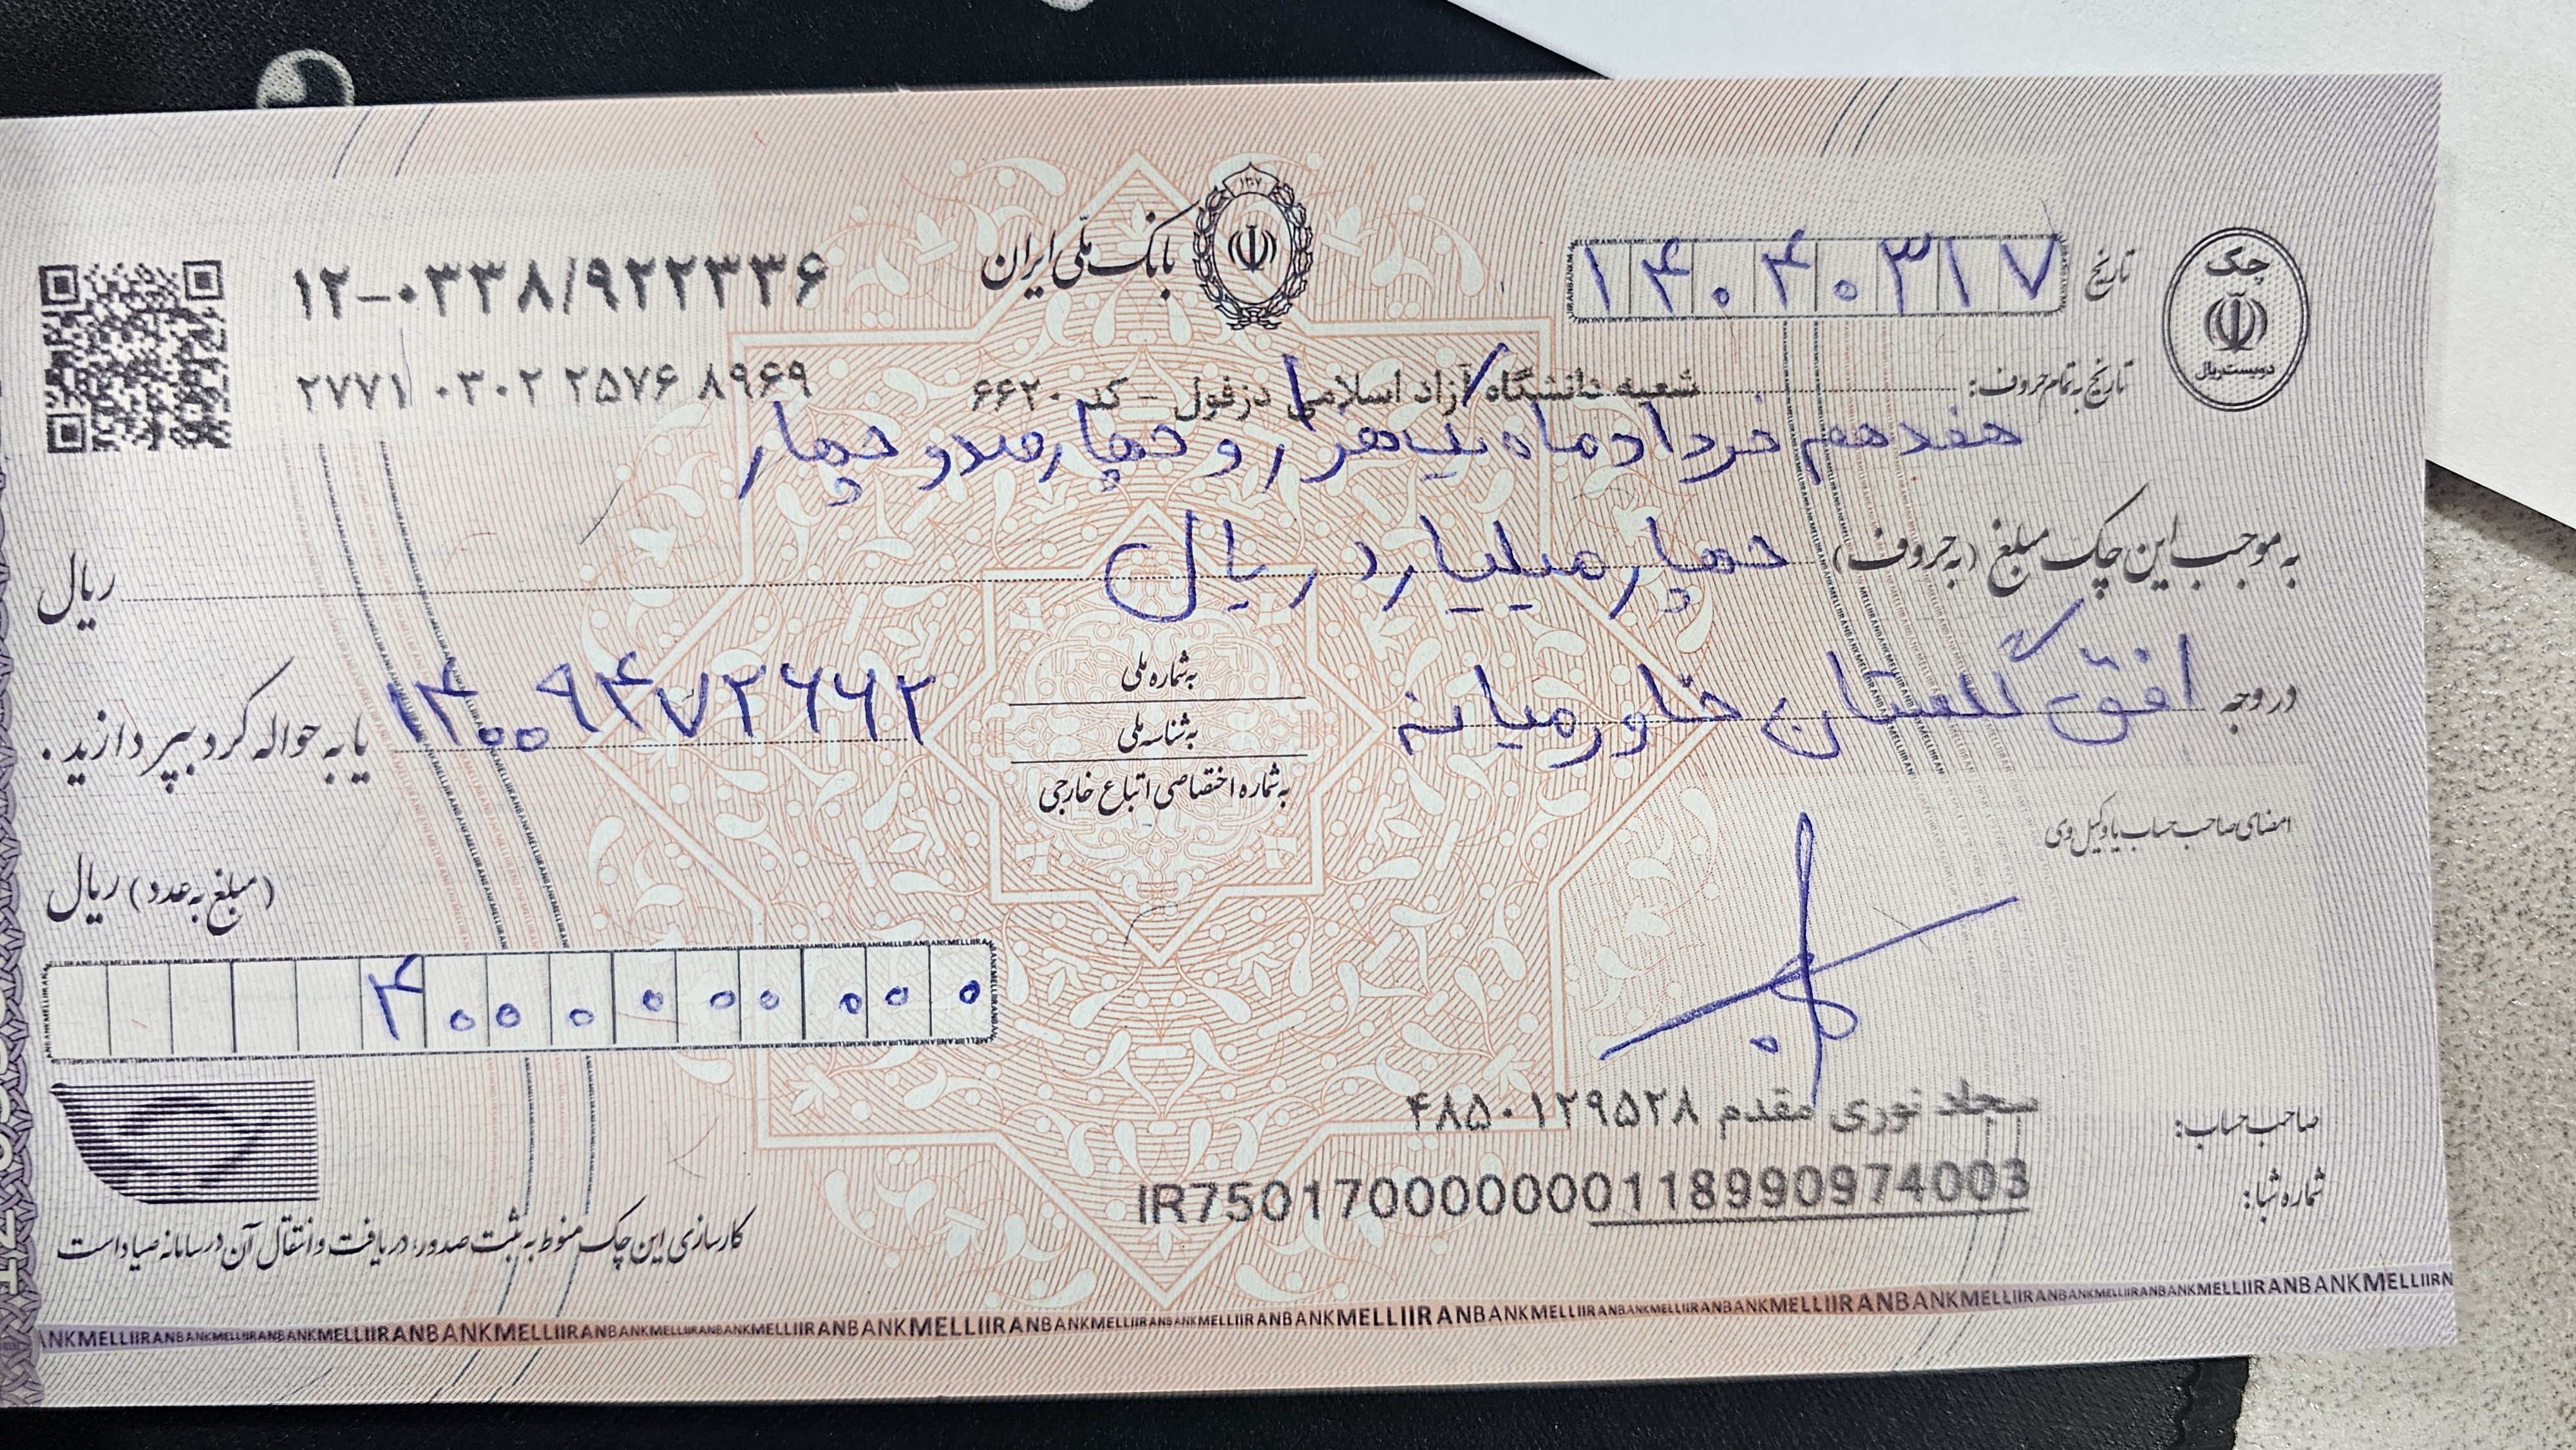 چک
دویست ریال
تاریخ ۱۴۰۴۰۳۱۷
۱۳۰۷
بانک ملّی ایران
۱۲-۰۳۳۸/۹۲۲۳۳۶
۲۷۷۱ ۰۳۰۲ ۲۵۷۶ ۸۹۶۹
تاریخ به تمام حروف:
شعبه دانشگاه آزاد اسلامی دزفول - کد ۶۶۲۰
هفدهم خرداد ماه یکهزار و چهارصدو چهار
به موجب این چک مبلغ (به حروف) چهار میلیارد ریال ریال
در وجه افق گلستان خاورمیانه
به شماره ملی
به شناسه ملی
به شماره اختصاصی اتباع خارجی
۱۴۰۰۹۴۷۲۶۶۲ یا به حواله کرد بپردازید.
امضای صاحب حساب یا وکیل وی
(مبلغ به عدد) ریال
۴۰۰۰۰۰۰۰۰۰
صاحب حساب: سجاد نوری مقدم ۴۸۵۰۱۲۹۵۲۸
شماره شبا: IR750170000000118990974003
کارسازی این چک منوط به ثبت صدور، دریافت و انتقال آن در سامانه صیاد است
ANKMELLIIRANBANKMELLIIRANBANKMELLIIRANBANKMELLIIRANBANKMELLIIRANBANKMELLIIRANBANKMELLIIRANBANKMELLIIRANBANKMELLIIRANBANKMELLIIRN